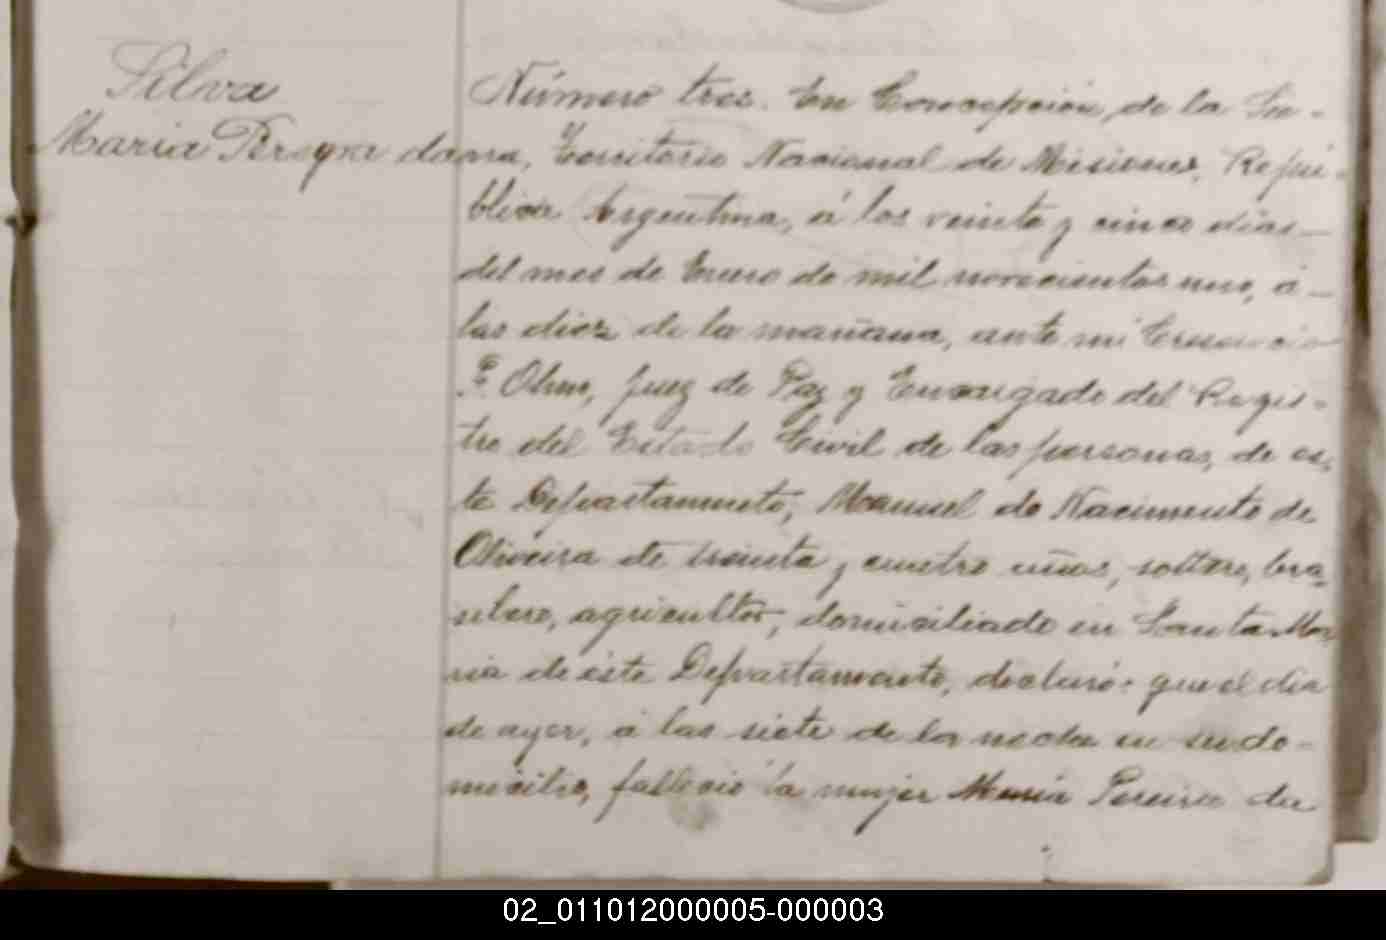 Silva
Maria Pereyra da
Número tres. En Concepcion, de la Sie-
rra, Territorio Nacional de Misiones, Repú-
blica Argentina, á los veinte y cinco dias
del mes de Enero de mil novecientos uno, á
las diez de la mañana, ante mi
Olmo, Juez de Paz y Encargado del Regis-
tro del Estado Civil de las personas, de es-
te Departamento, Manuel do Nacimento de
Oliveira de treinta y cuatro años, soltero, bra-
silero, agricultor, domiciliado en Santa Ma-
ria de éste Departamento, declaró: que el dia
de ayer, á las siete de la noche en su do-
micilio, falleció la mujer Maria Pereira da
02_011012000005-000003